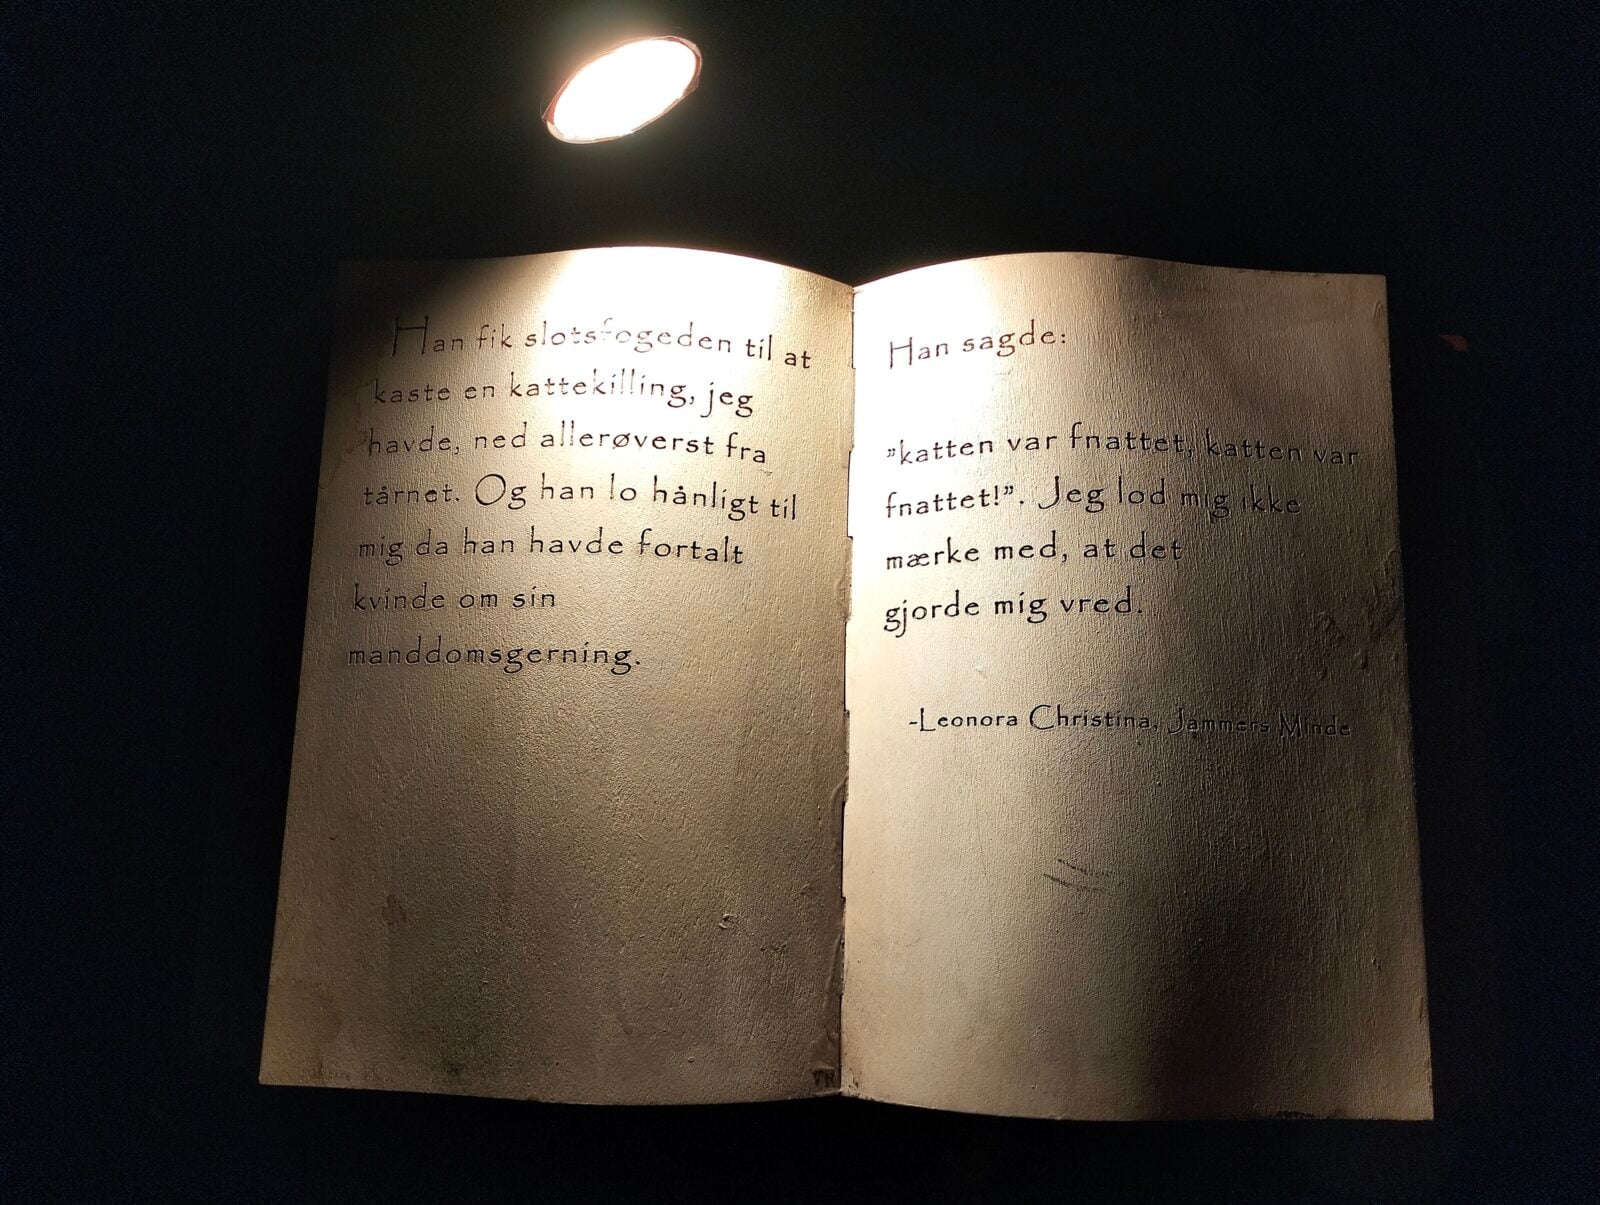 Han fik slotsfogeden til at
kaste en kattekilling, jeg
havde, ned allerøverst fra
tårnet. Og han lo hånligt til
mig da han havde fortalt
kvinde om sin
manddomsgerning.
Han sagde:
”katten var fnattet, katten var
fnattet!”. Jeg lod mig ikke
mærke med, at det
gjorde mig vred.
-Leonora Christina, Jammers Minde